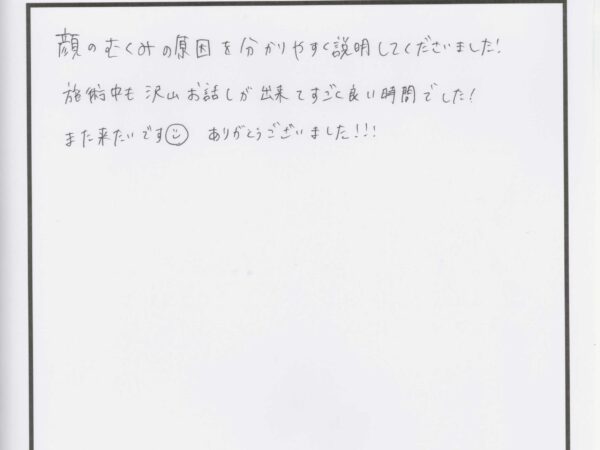 顔のむくみの原因を分かりやすく説明してくださいました!
施術中も沢山お話しが出来てすごく良い時間でした!
また来たいです☺ ありがとうございました!!!